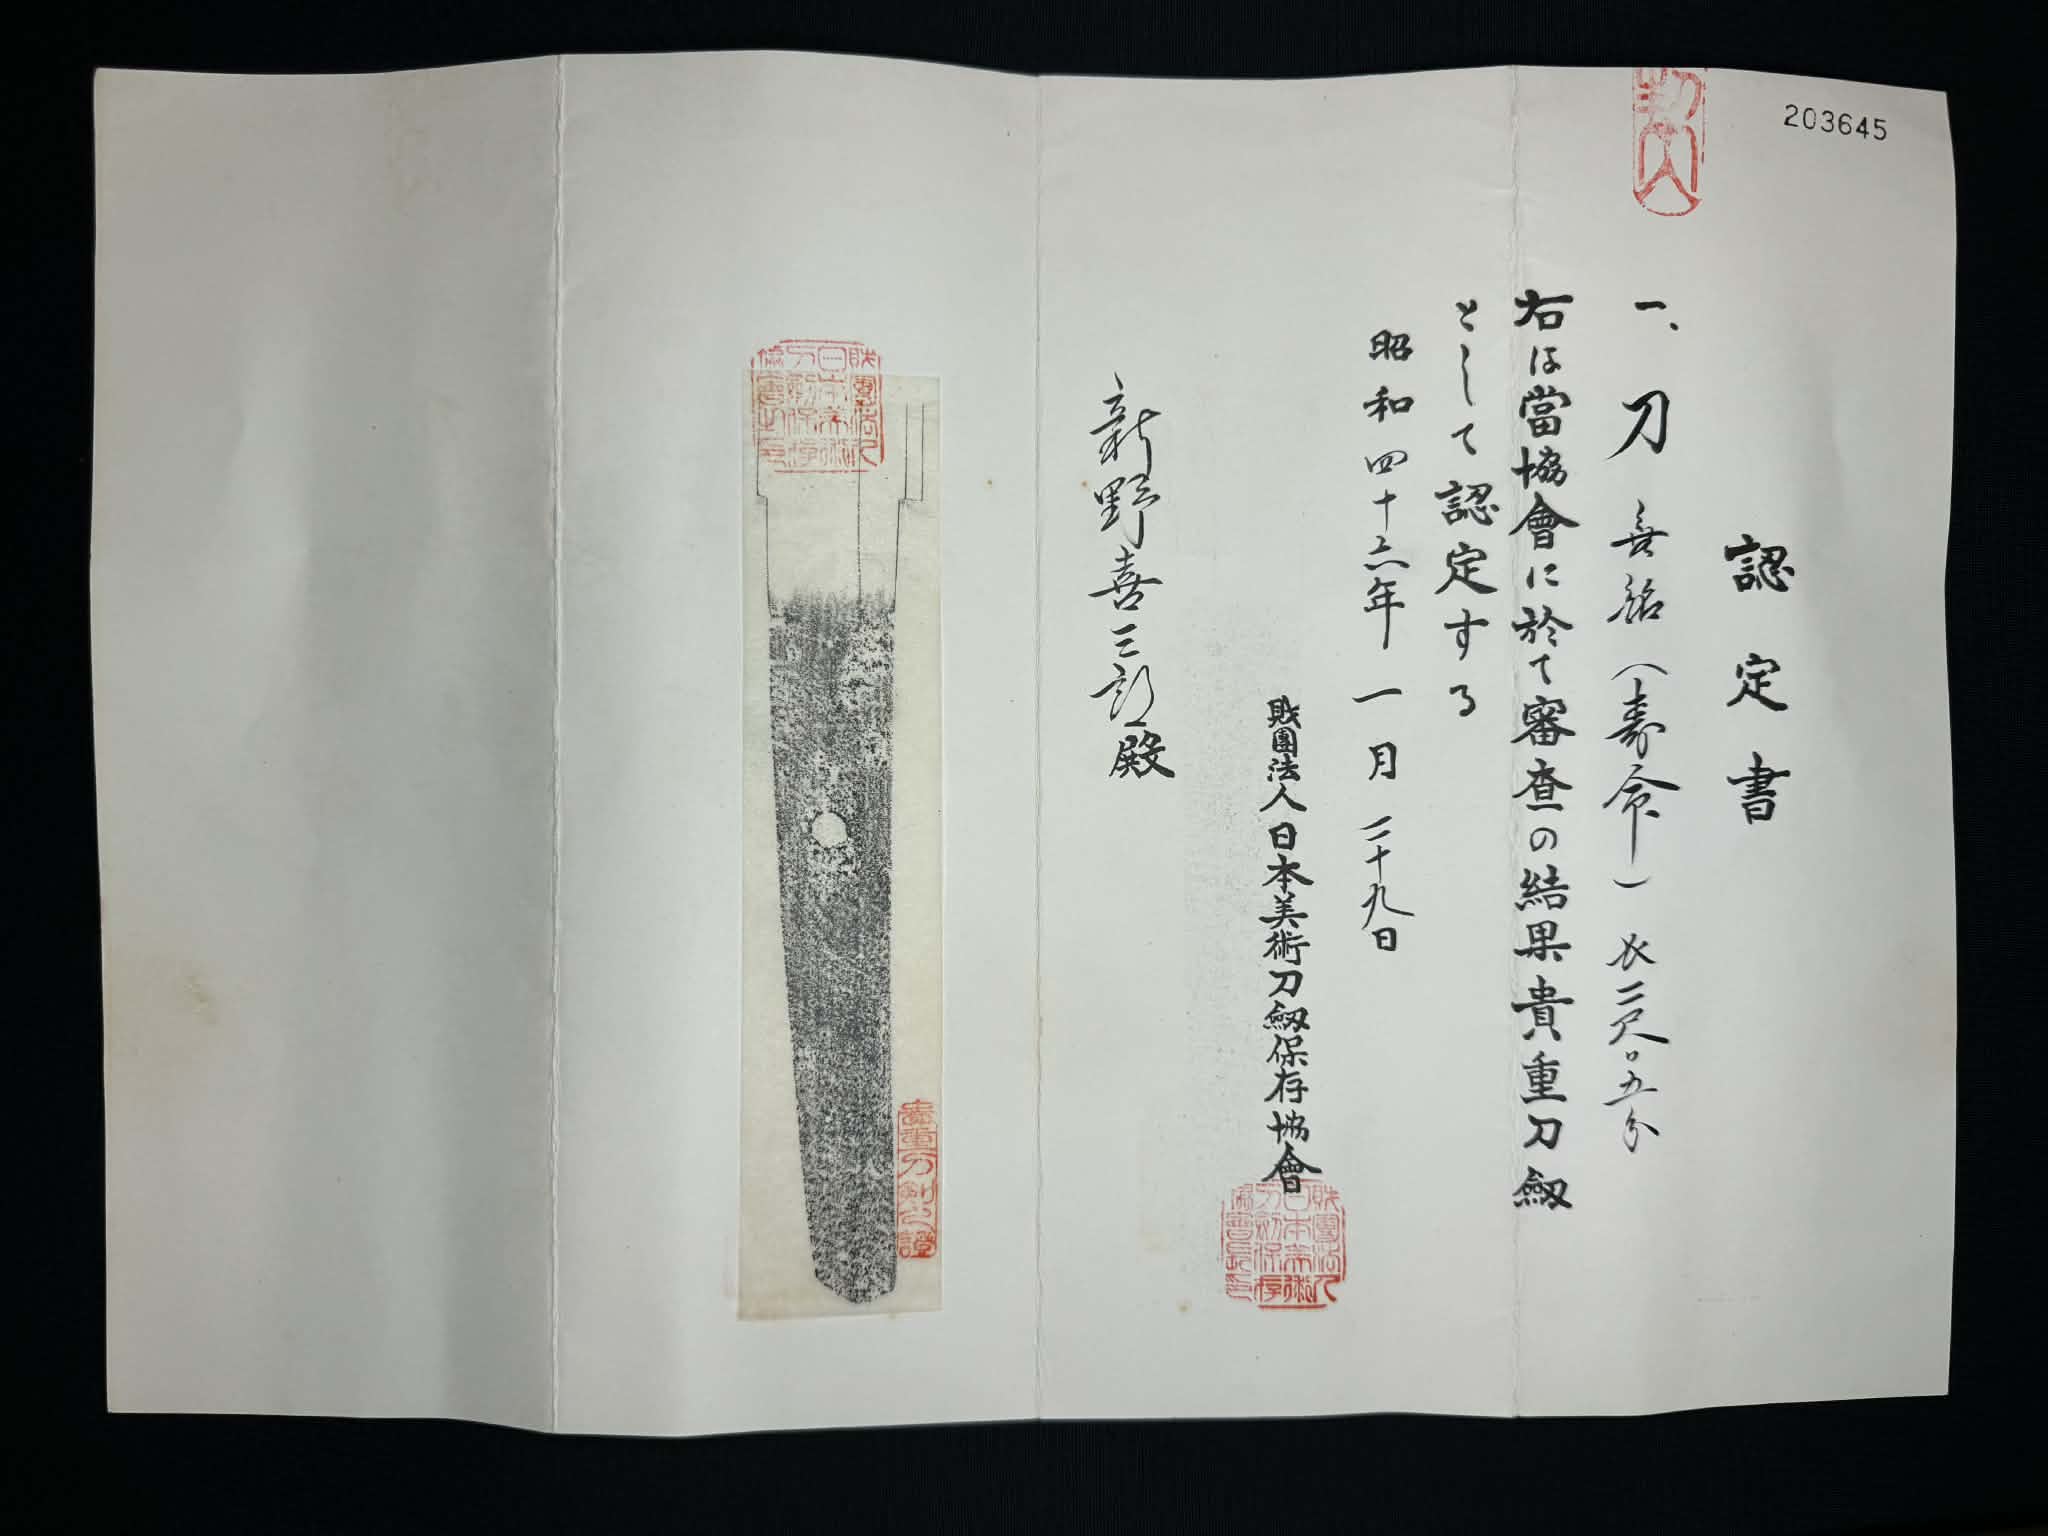 203645
認定書
一、刀 無銘(寿命) 长二尺〇五分
右は當協會に於て審査の結果貴重刀劔
として認定する
昭和四十六年一月二十九日
財團法人日本美術刀劔保存協會
財團法人日本美術刀劔保存協會長之印
新野喜三郎殿
財團法人日本美術刀劔保存協會之印
貴重刀剣之證